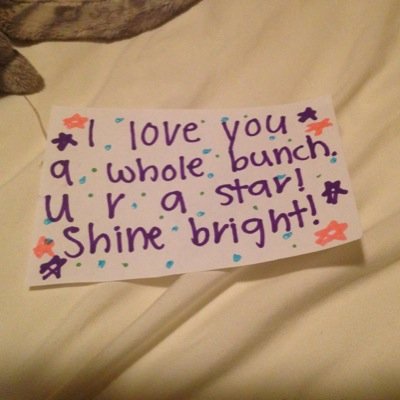 I love you
a whole bunch.
U r a star!
Shine bright!